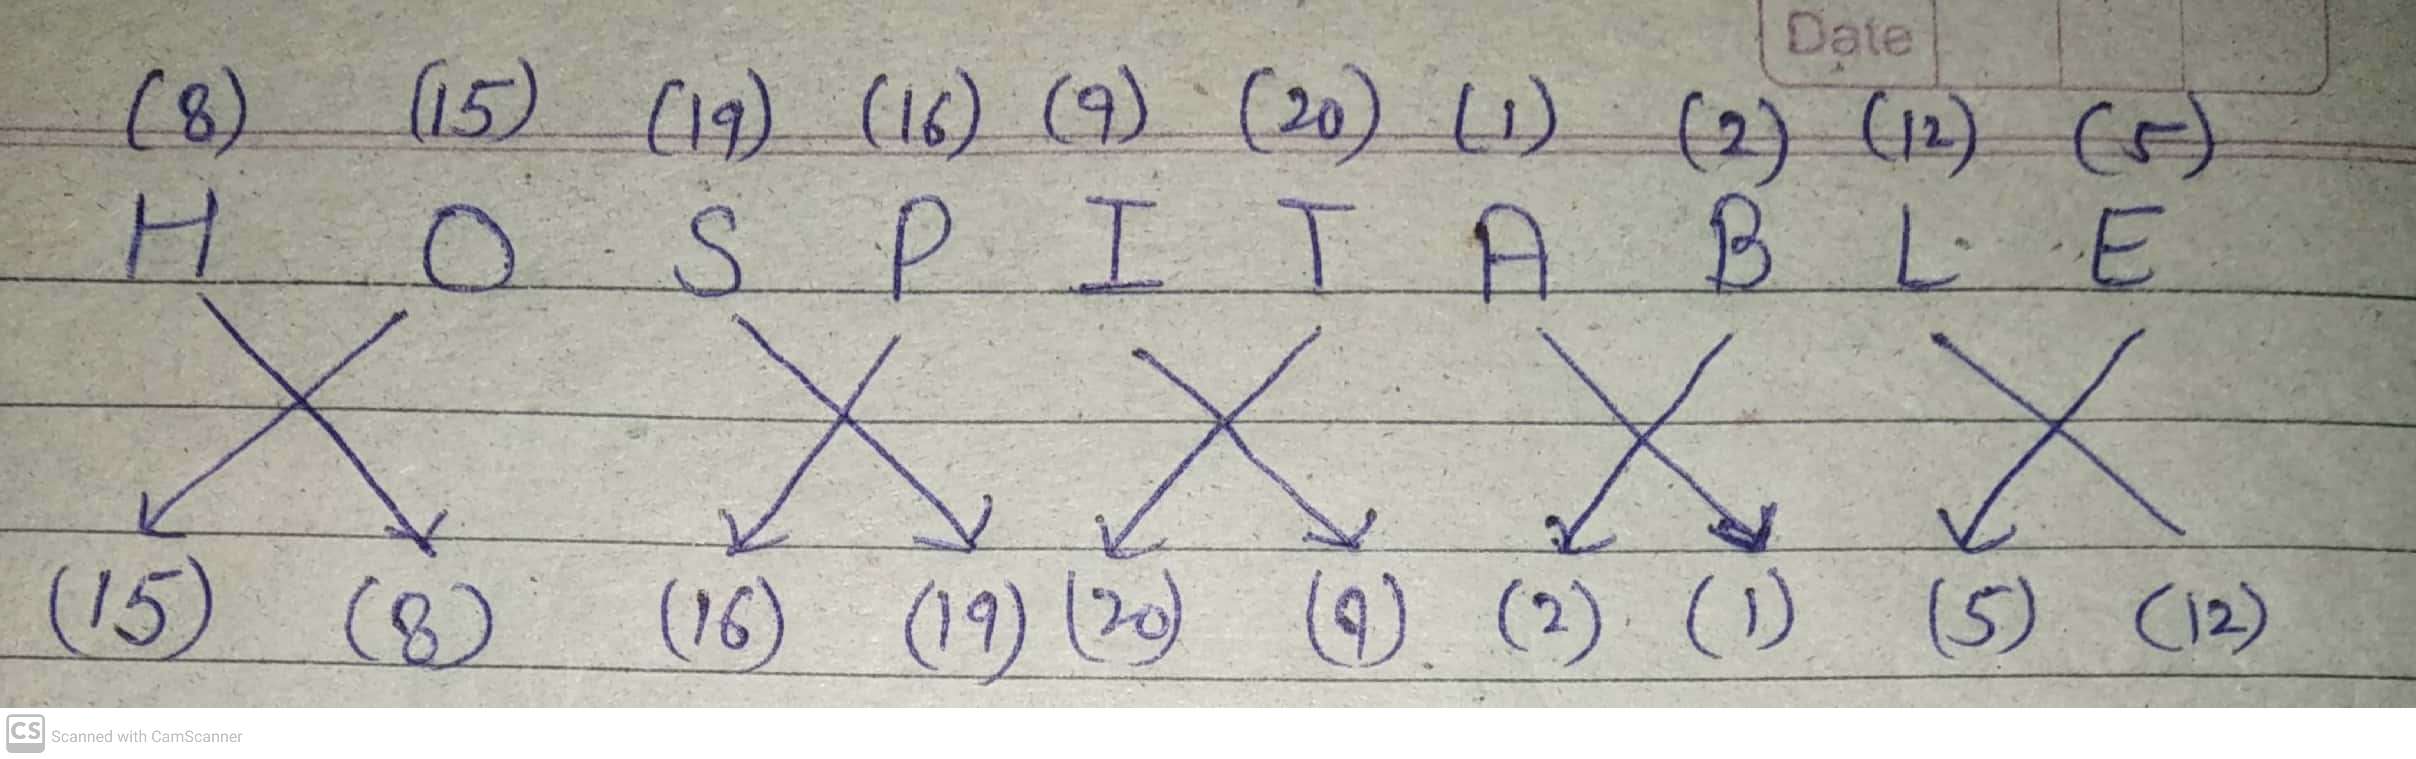 Date
(8) (15) (19) (16) (9) (20) (1) (2) (12) (5)
H O S P I T A B L E
(15) (8) (16) (19) (20) (9) (2) (1) (5) (12)
CS Scanned with CamScanner